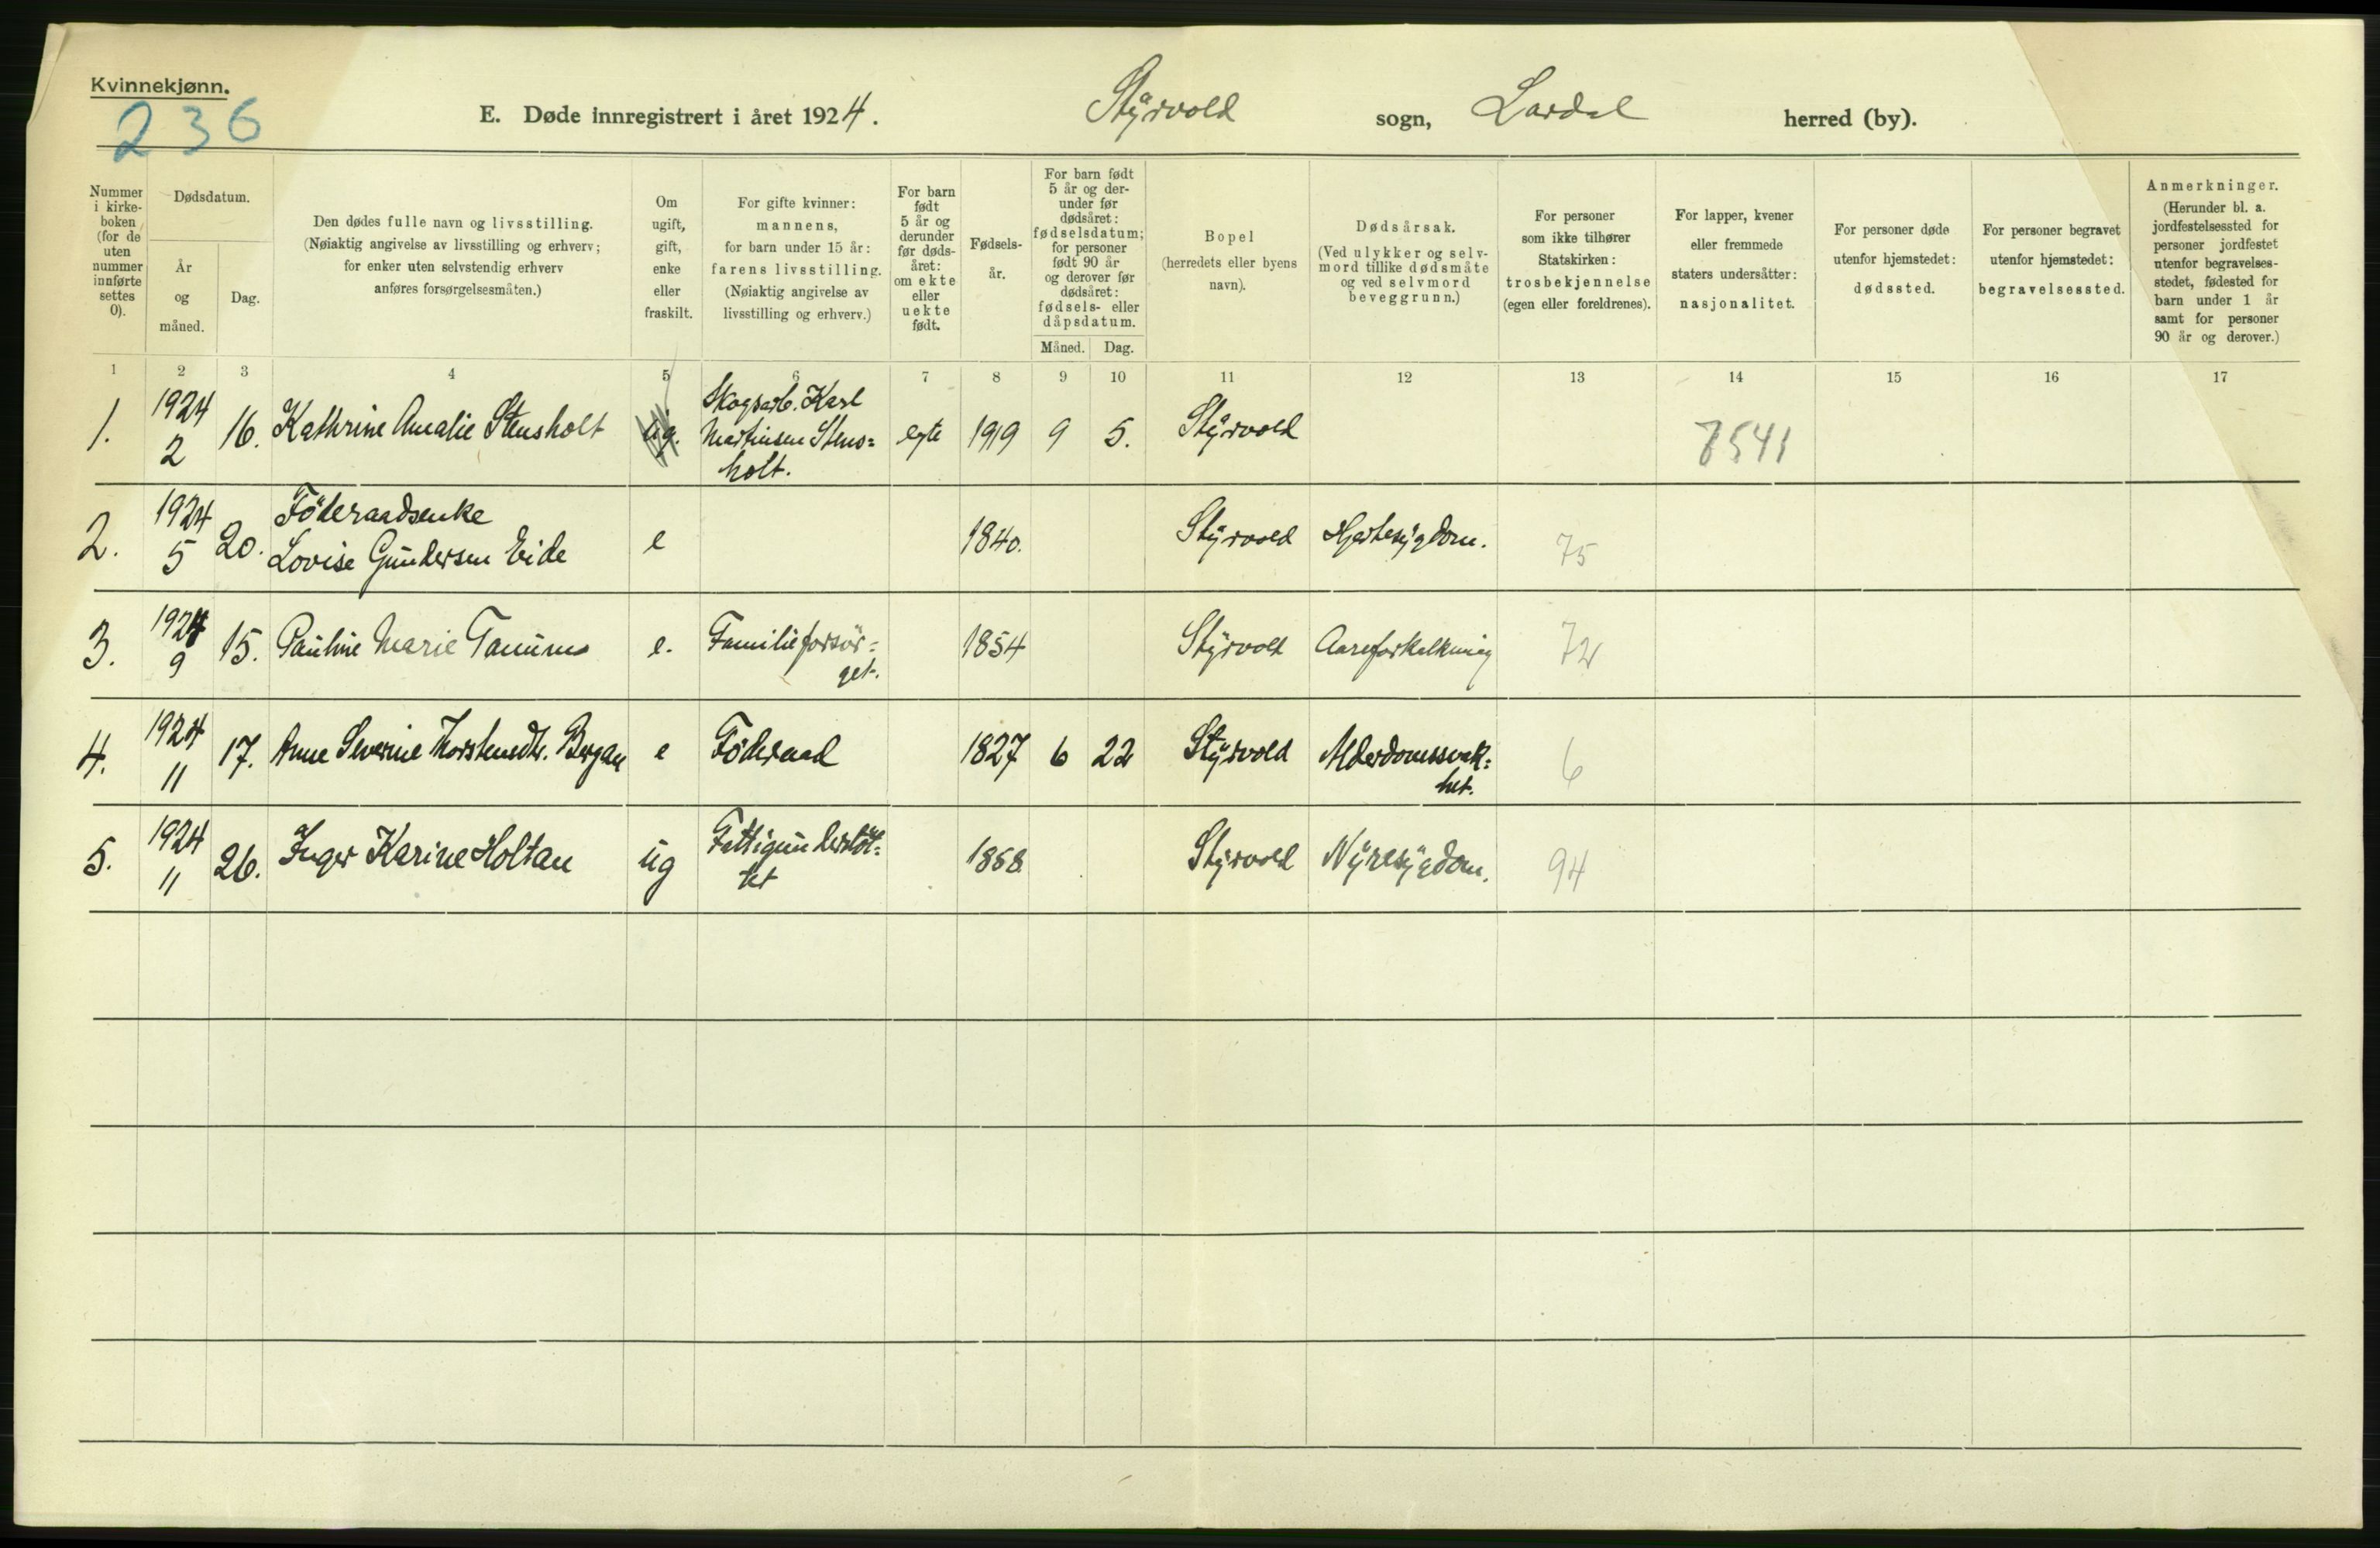 Kvinnekjønn.
236
E. Døde innregistrert i året 1924.
Styrvold sogn, Lardal herred (by).
Nummer i kirke- boken (for de uten nummer innførte settes 0).
Dødsdatum.
År og måned.
Dag.
Den dødes fulle navn og livsstilling.
(Nøiaktig angivelse av livsstilling og erhverv;
for enker uten selvstendig erhverv
anføres forsørgelsesmåten.)
Om ugift, gift, enke eller fraskilt.
For gifte kvinner:
mannens,
for barn under 15 år:
farens livsstilling.
(Nøiaktig angivelse av
livsstilling og erhverv.)
For barn født 5 år og derunder før døds- året: om ekte eller uekte født.
Fødsels- år.
For barn født 5 år og der- under før dødsåret: fødselsdatum; for personer født 90 år og derover før dødsåret: fødsels- eller dåpsdatum.
Måned. Dag.
Bopel
(herredets eller byens
navn).
Dødsårsak.
(Ved ulykker og selv-
mord tillike dødsmåte
og ved selvmord
beveggrunn.)
For personer
som ikke tilhører
Statskirken:
trosbekjennelse
(egen eller foreldrenes).
For lapper, kvener
eller fremmede
staters undersåtter:
nasjonalitet.
For personer døde
utenfor hjemstedet:
dødssted.
For personer begravet
utenfor hjemstedet:
begravelsessted.
Anmerkninger.
(Herunder bl. a.
jordfestelsessted for
personer jordfestet
utenfor begravelses-
stedet, fødested for
barn under 1 år
samt for personer
90 år og derover.)
1 2 3 4 5 6 7 8 9 10 11 12 13 14 15 16 17
1. 1924 2 16. Kathrine Amalie Stensholt ug. Skogsarb. Karl Martinsen Stens= holt. egte 1919 9 5. Styrvold 7541
2. 1924 5 20. Föderaadsenke Lovise Gundersen Eide e 1840. Styrvold Hjertesygdom. 75
3. 1924 9 15. Pauline Marie Tanum e. Familieforsör= get. 1854 Styrvold Aareforkalkning 72
4. 1924 11 17. Anne Severine Thorstensdtr. Bergan e Föderaad 1827 6 22 Styrvold Alderdomssvak= het. 6
5. 1924 11 26. Inger Karine Holtan ug Fattigunderstöt= tet 1858 Styrvold Nyresygdom. 94